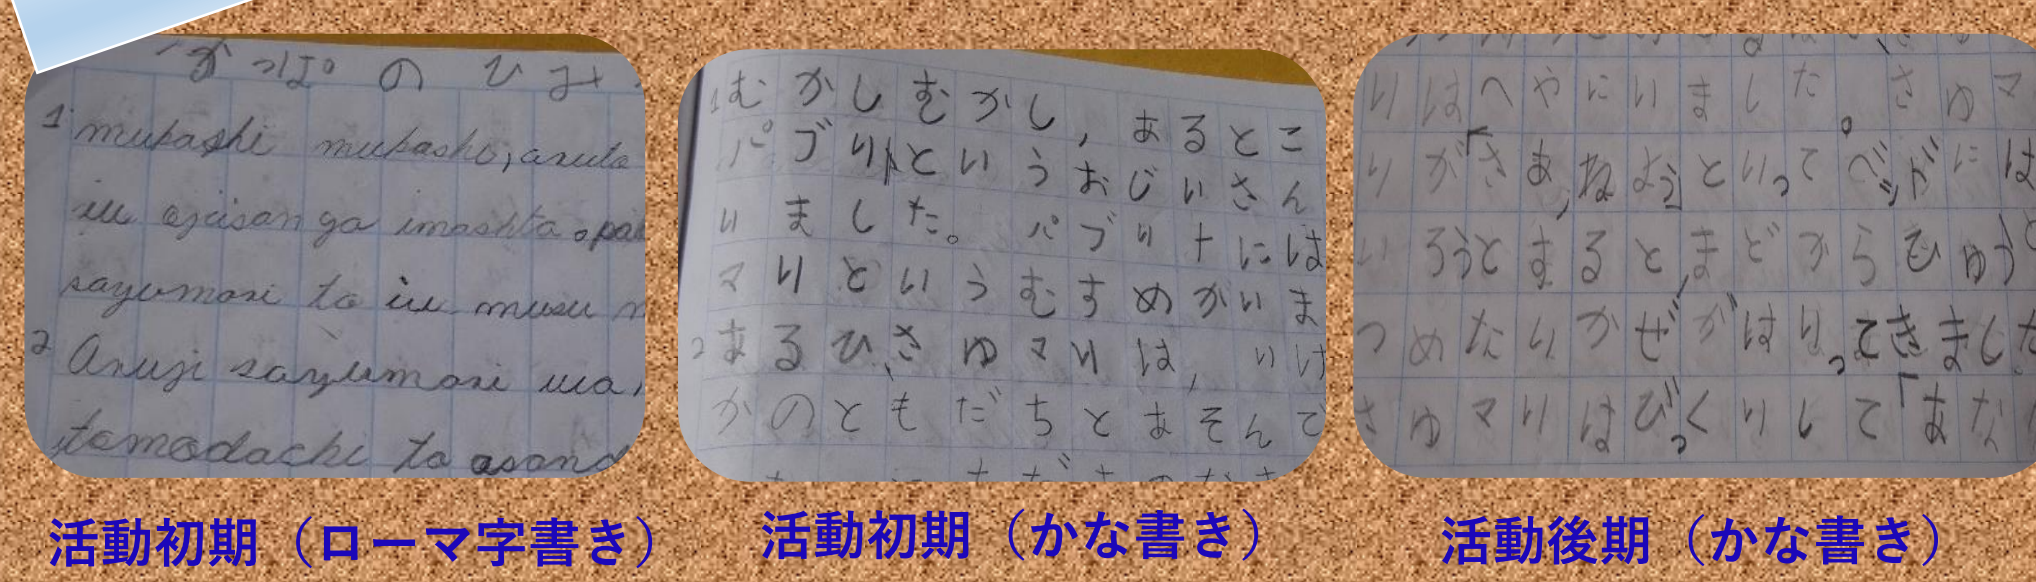 かっぱのひみ
1 mukashi mukashi, aruto
iu ojiisan ga imashita. pab
sayumari to iu musu m
2 Aruji sayumari wa,
tomodachi to asond
1 むかしむかし, あるとこ
パブリトというおじいさん
いました。 パブリトには
マリというむすめがいま
2 あるひ、さゆマリは, いけ
かのともだちとあそんで
りはへやにいました。さゆマ
りが「さあ、ねよう」といって、べッドには
いろうとするとまどからひゅうと
つめたいかぜがはいってきました
さゆマリはびっくりして「あな
活動初期（ローマ字書き）
活動初期（かな書き）
活動後期（かな書き）